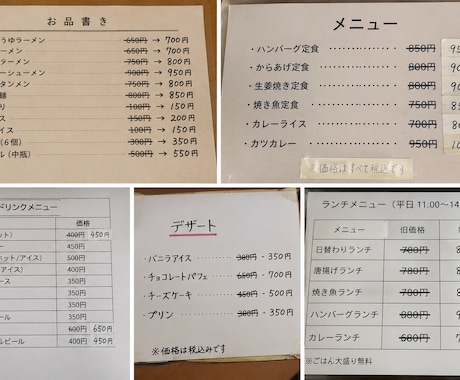 お品書き
うゆラーメン 650円 → 700円
ーメン 650円 → 700円
ターメン 750円 → 800円
ーシューメン 900円 → 950円
タンメン 750円 → 800円
麺 800円 → 850円
り 100円 → 150円
ス 150円 → 200円
イス 100円 → 150円
(6個) 300円 → 350円
ル (中瓶) 500円 → 550円
メニュー
・ハンバーグ定食 850円
・からあげ定食 800円
・生姜焼き定食 800円
・焼き魚定食 750円
・カレーライス 700円
・カツカレー 950円
※価格はすべて税込です
ドリンクメニュー
価格
ット) 400円 450円
ー 450円
ホット/アイス) 500円
/アイス) 400円
ース 350円
350円
350円
ール 350円
600円 650円
ルビール 400円 450円
デザート
・バニラアイス 300円 - 350円
・チョコレートパフェ 650円 - 700円
・チーズケーキ 450円 - 500円
・プリン 300円 - 350円
※価格は税込みです
ランチメニュー (平日 11:00~14
メニュー 旧価格
日替わりランチ 780円
唐揚げランチ 780円
焼き魚ランチ 780円
ハンバーグランチ 880円
カレーランチ 680円
※ごはん大盛り無料